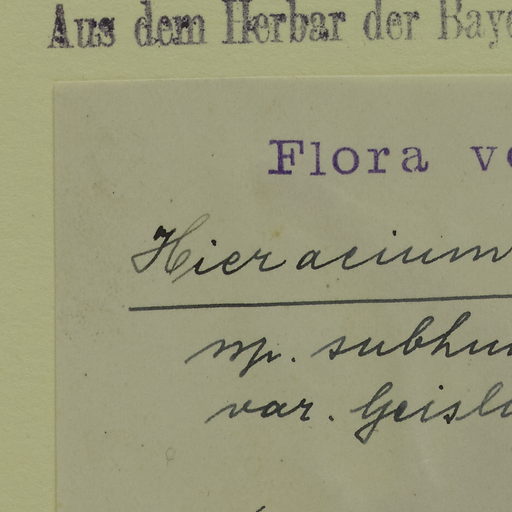 Aus dem Herbar der Baye
Flora vo
Hieracium
ssp. subhu
var. Geisl